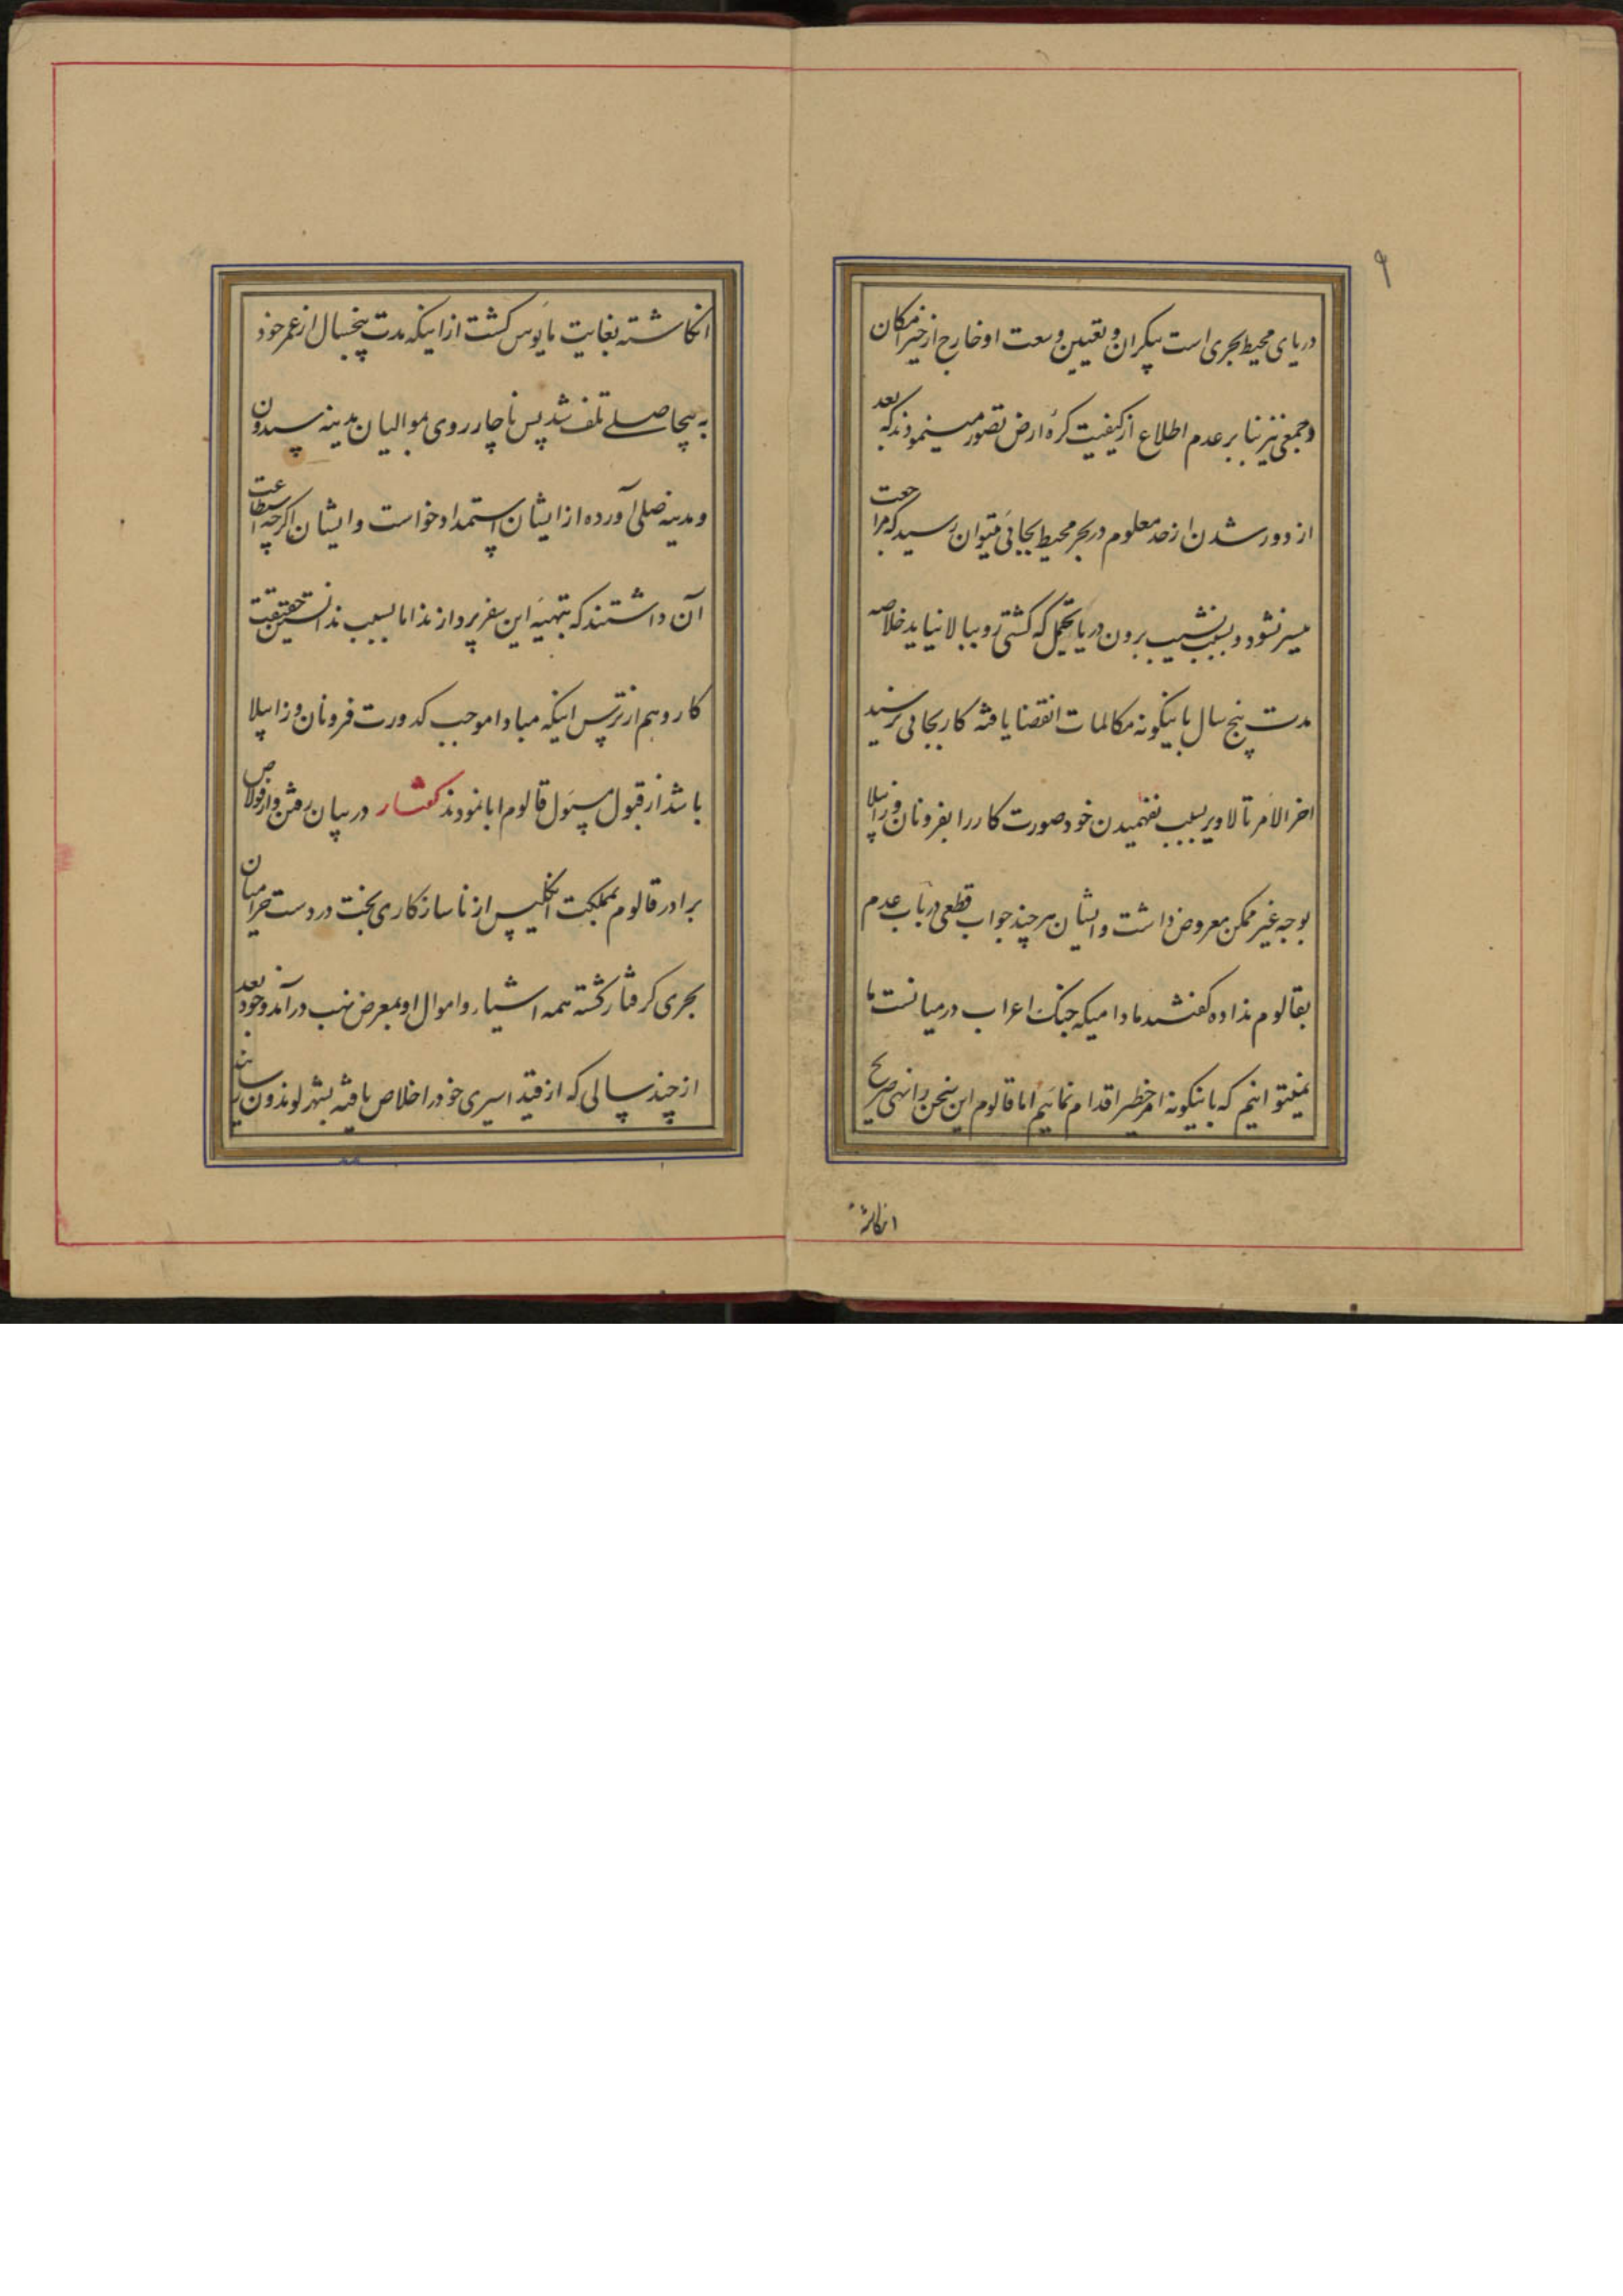 ۹
دریای محیط بحری است بیکران و تعیین وسعت او خارج از حیز امکان
و جمعی نیز بنا بر عدم اطلاع از کیفیت کرهٔ ارض تصور مینمودند که بعد
از دور شدن از حد معلوم در بحر محیط بجائی میتوان رسید که مراجعت
میسر نشود و بسبب نشیب برون دریا یحتمل که کشتی رو ببالا نیاید خلاصه
مدت پنج سال باینکونه مکالمات انقضا یافته کار بجائی نرسید
اخر الامر تالاویر بسبب نفهمیدن خود صورت کار را بفرونان و زابیلا
بوجه غیر ممکن معروض داشت و ایشان هر چند جواب قطعی در باب عدم
بقالوم نداده کفتند مادامیکه جنک اعراب در میانست ما
نمیتوانیم که باینکونه امر خطیر اقدام نمائیم اما قالوم این سخن را نهی صریح
انکاشته
انکاشته بغایت مایوس کشت از اینکه مدت پنجسال از عمر خود
به بیحاصلی تلف شد پس ناچار روی بموالیان مدینه سیدون
و مدینه صلی آورده از ایشان استمداد خواست و ایشان اکرچه استطاعت
آن داشتند که بتهیهٔ این سفر پردازند اما بسبب ندانستن حقیقت
کار و هم از ترس اینکه مبادا موجب کدورت فرونان و زابیلا
باشد از قبول مسئول قالوم ابا نمودند کفتار در بیان رفتن وارفولاص
برادر قالوم بمملکت انکلیس از ناسازکاری بخت در دست حرامیان
بحری کرفتار کشته همه اشیاء و اموال او بمعرض نهب در آمد و خود بعد
از چند سالی که از قید اسیری خود را خلاص یافته بشهر لوندون رسانید